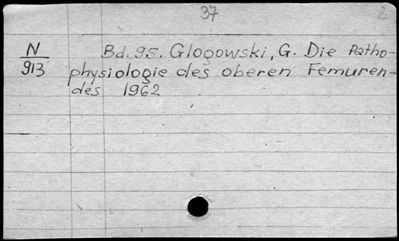 37 2
N Bd. 95. Glogowski, G. Die Patho-
913 physiologie des oberen Femuren-
des 1962